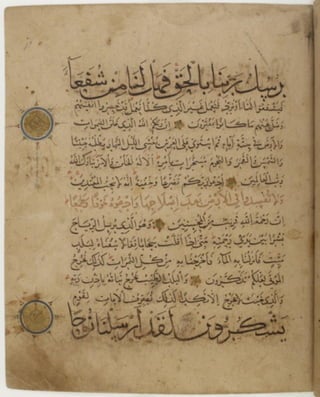 رسل ربنا بالحق فهل لنا من شفعا
فيشفعوا لنا أو نرد فنعمل غير الذي كنا نعمل قد خسروا أنفسهم
وضل عنهم ما كانوا يفترون إن ربكم الله الذي خلق السموات
والأرض في ستة أيام ثم استوى على العرش يغشي الليل النهار يطلبه حثيثا
والشمس والقمر والنجوم مسخرات بأمره ألا له الخلق والأمر تبارك الله
رب العالمين ادعوا ربكم تضرعا وخفية إنه لا يحب المعتدين
ولا تفسدوا في الأرض بعد إصلاحها وادعوه خوفا وطمعا
إن رحمة الله قريب من المحسنين وهو الذي يرسل الرياح
بشرا بين يدي رحمته حتى إذا أقلت سحابا ثقالا سقناه لبلد
ميت فأنزلنا به الماء فأخرجنا به من كل الثمرات كذلك نخرج
الموتى لعلكم تذكرون والبلد الطيب يخرج نباته بإذن ربه
والذي خبث لا يخرج إلا نكدا كذلك نصرف الآيات لقوم
يشكرون لقد أرسلنا نوحا